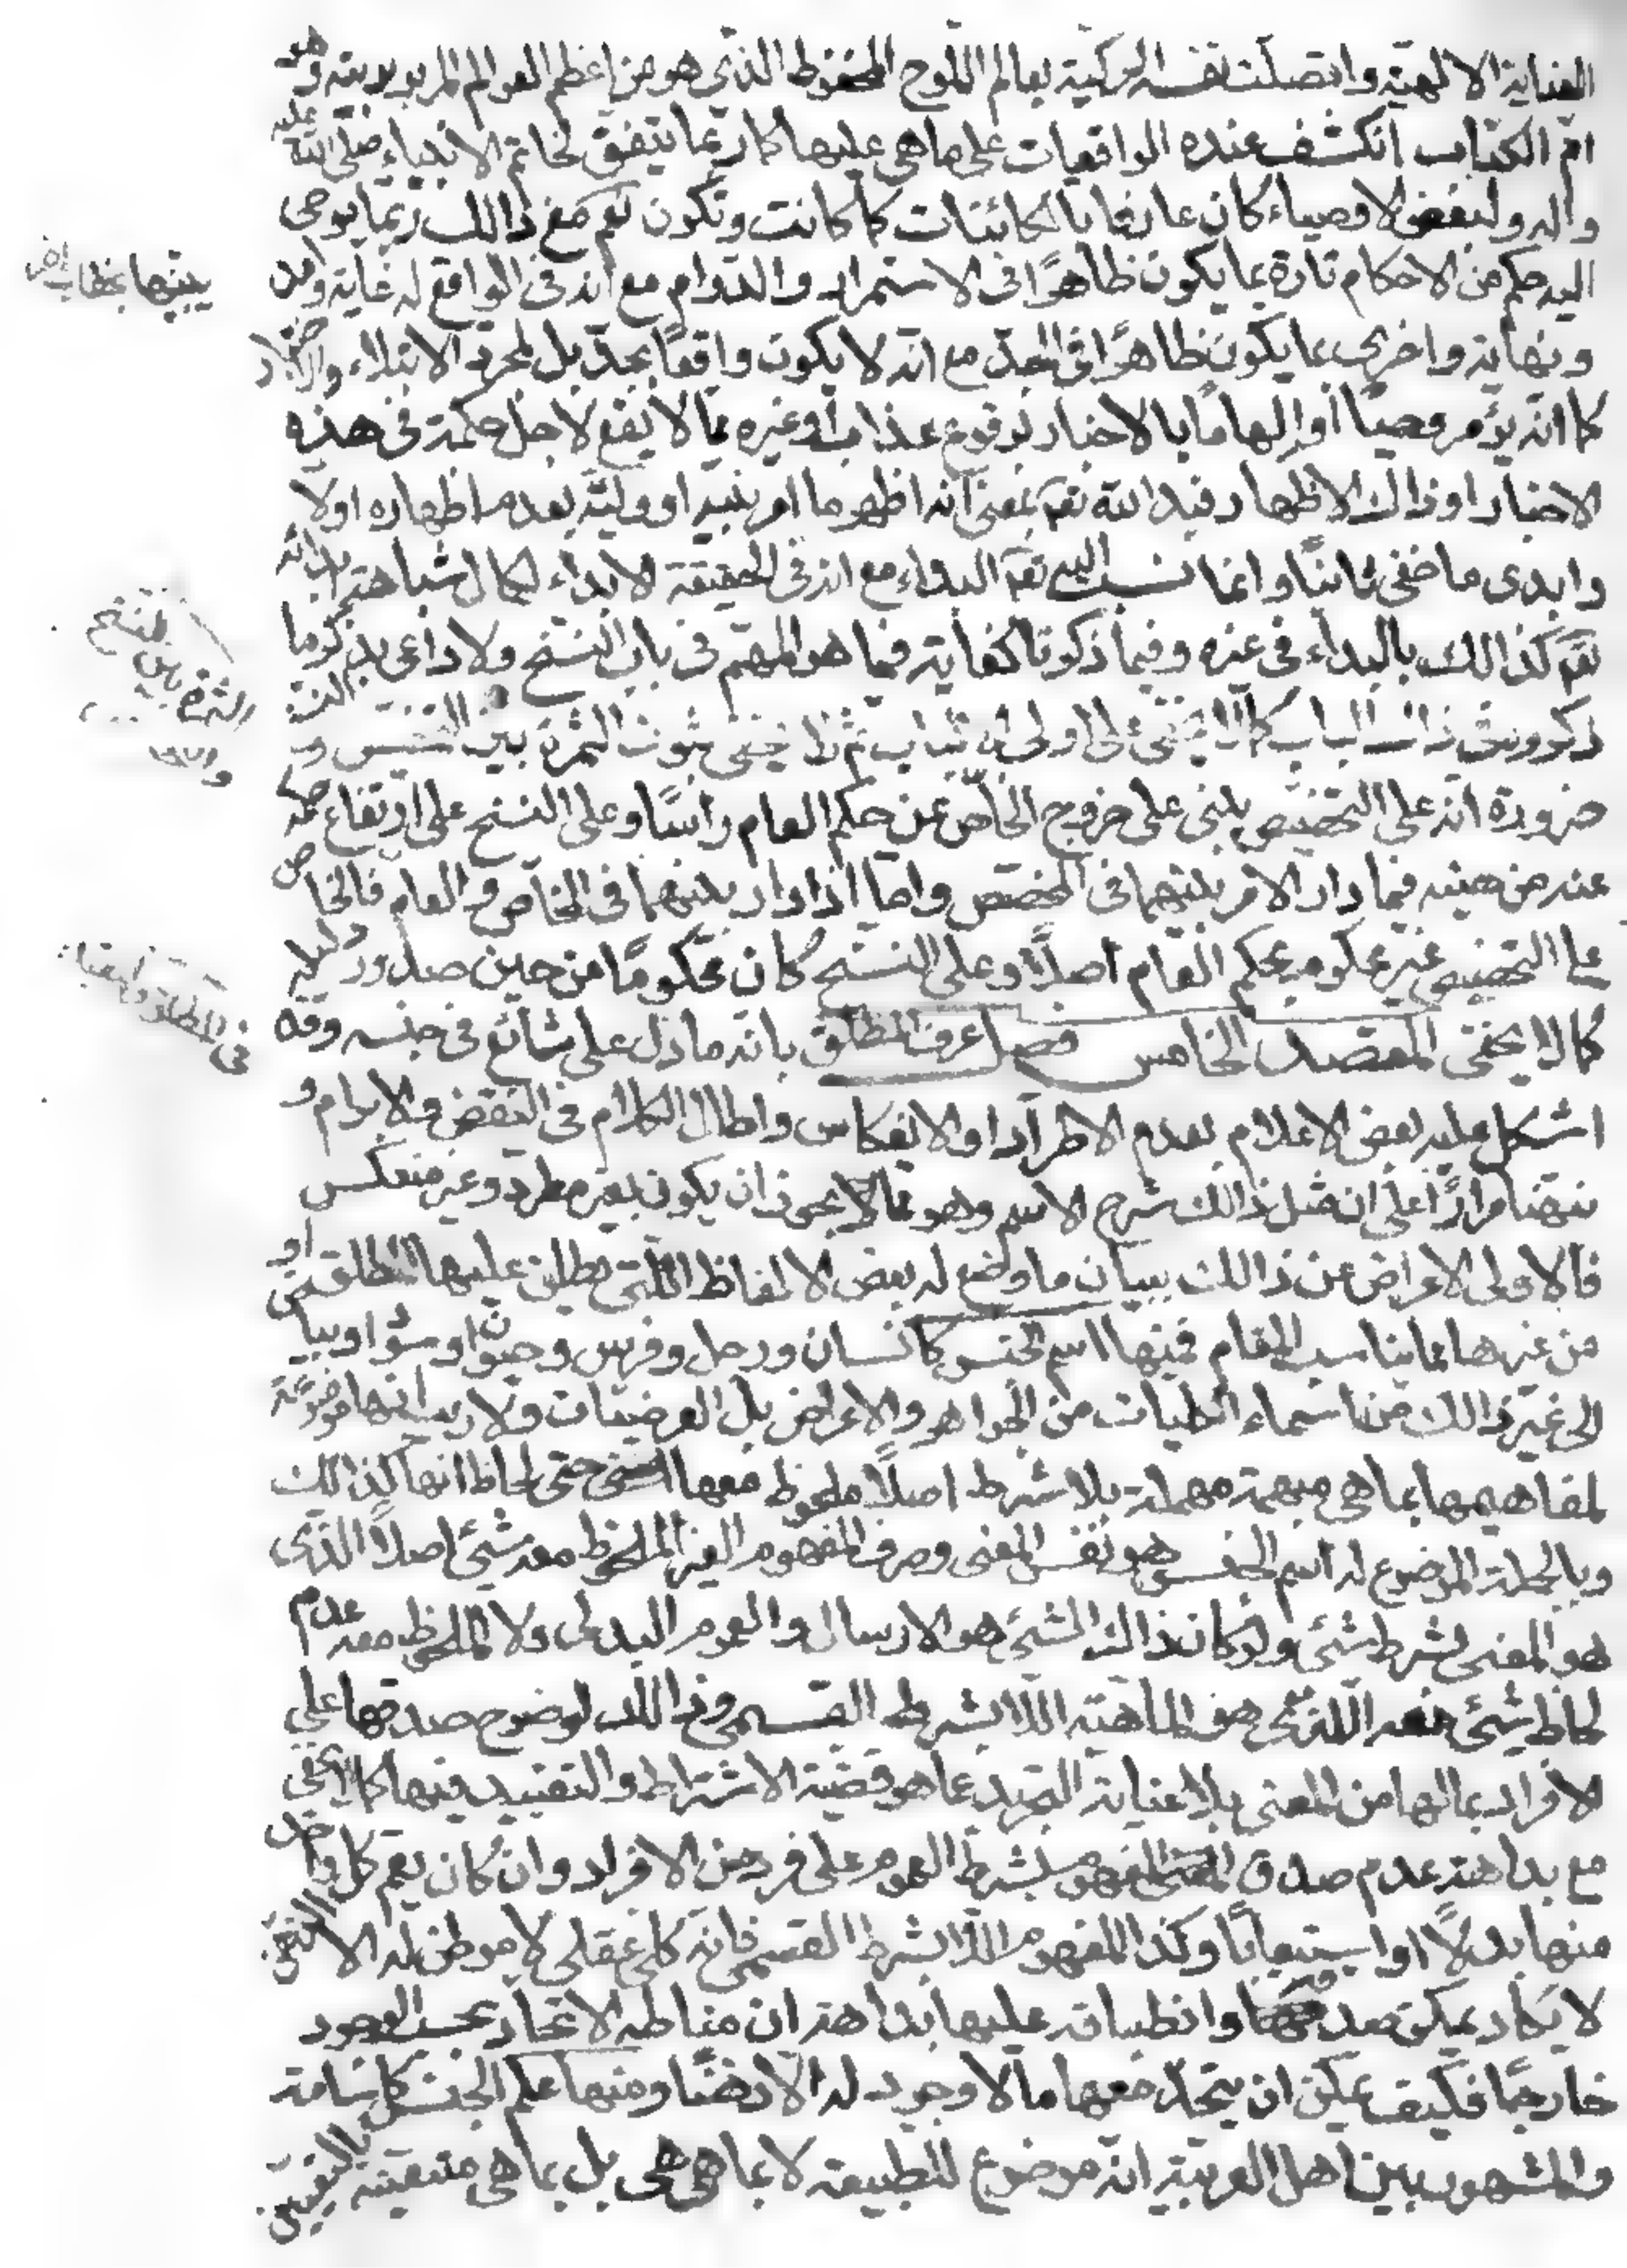 العناية الالهية واتصلت نفسه الزكية بعالم اللوح المحفوظ الذي هو من اعظم العوالم الربوبية وهو
ام الكتاب انكشف عنده الواقعيات على ما هي عليها كما ربما يتفق لخاتم الانبياء صلى الله عليه
واله ولبعض الاوصياء كان عارفا بالكائنات كما كانت وتكون نعم مع ذالك ربما يوحى
اليه حكم من الاحكام تارة بما يكون ظاهرا في الاستمرار والدوام مع انه في الواقع له غاية وامد
يبينها بخطاب اخر
ونهاية واخرى بما يكون ظاهرا في الجد مع انه لا يكون واقعا بجد بل لمجرد الابتلاء والاختبار
كما انه يؤمر وحيا او الهاما بالاخبار بوقوع عذاب او غيره مما لا يقع لاجل حكمة في هذه
الاخبار او ذالك الاظهار فبدا لله تعم بمعنى انه اظهر ما امر نبيه او وليه بعدم اظهاره اولا
وابدى ما خفى ثانيا وانما نسب اليه تعم البداء مع انه في الحقيقة الابداء لكمال شباهة ابدائه
تعم كذالك بالبداء في غيره وفيما ذكرنا كفاية فيما هو المهم في باب النسخ ولا داعى بذكر ما
ذكروه في ذالك الباب كما لا يخفى على اولى الالباب ثم لا يخفى ثبوت الثمرة بين التخصيص و النسخ
ضرورة انه على التخصيص يبنى على خروج الخاص عن حكم العام راسا وعلى النسخ على ارتفاع حكمه
عنه من حينه فيما دار الامر بينهما في المخصص واما اذا دار بينهما في الخاص والعام فالخاص
على التخصيص غير محكوم بحكم العام اصلا وعلى النسخ كان محكوما من حين صدور دليله
كما لا يخفى المقصد الخامس فصل عرف المطلق بانه ما دل على شائع في جنسه وقد
في المطلق والمقيد
اشكل عليه بعض الاعلام بعدم الاطراد او الانعكاس واطال الكلام في النقض والابرام و
نبهنا مرارا على ان مثل ذالك شرح الاسم وهو مما لا يجوز ان يكون بغير مطرد وغير منعكس
فالاولى الاعراض عن ذالك ببيان ما وضع له بعض الالفاظ اللتي يطلق عليها المطلق او
من غيرها مما يناسب المقام فمنها اسم الجنس كانسان ورجل وفرس وحيوان وسواد وبياض
الى غير ذالك من اسماء الكليات من الجواهر والاعراض بل العرضيات ولا ريب انها موضوعة
لمفاهيمها بما هي مبهمة مهملة بلا شرط اصلا ملحوظ معها حتى لحاظ انها كذالك
وبالجملة الموضوع له اسم الجنس هو نفس المعنى وصرف المفهوم الغير الملحوظ معه شيئ اصلا الذي
هو المعنى بشرط شيئ ولو كان ذالك الشيئ هو الارسال والعموم البدلى ولا الملحوظ معه عدم
لحاظ شيئ معه اللذي هو الماهية اللا بشرط القسمى وذالك لوضوح صدقها على
الافراد بما لها من المعنى بلا عناية التجريد عما هو قضية الاشتراط والتقييد فيها كما لا يخفى
مع بداهة عدم صدق المفهوم بشرط العموم على فرد من الافراد وان كان يعم كل واحد
منها بدلا او استيعابا وكذا المفهوم اللا بشرط القسمى فانه كلى عقلى لا موطن له الا الذهن
لا يكاد يمكن صدقها وانطباقه عليها بداهة ان مناطه الاتحاد بحسب الوجود
خارجا فكيف يمكن ان يتحد معها ما لا وجود له الا ذهنا ومنها علم الجنس كاسامة
والمشهور بين اهل العربية انه موضوع للطبيعة لا بما هي هي بل بما هي متعينة بالتعين